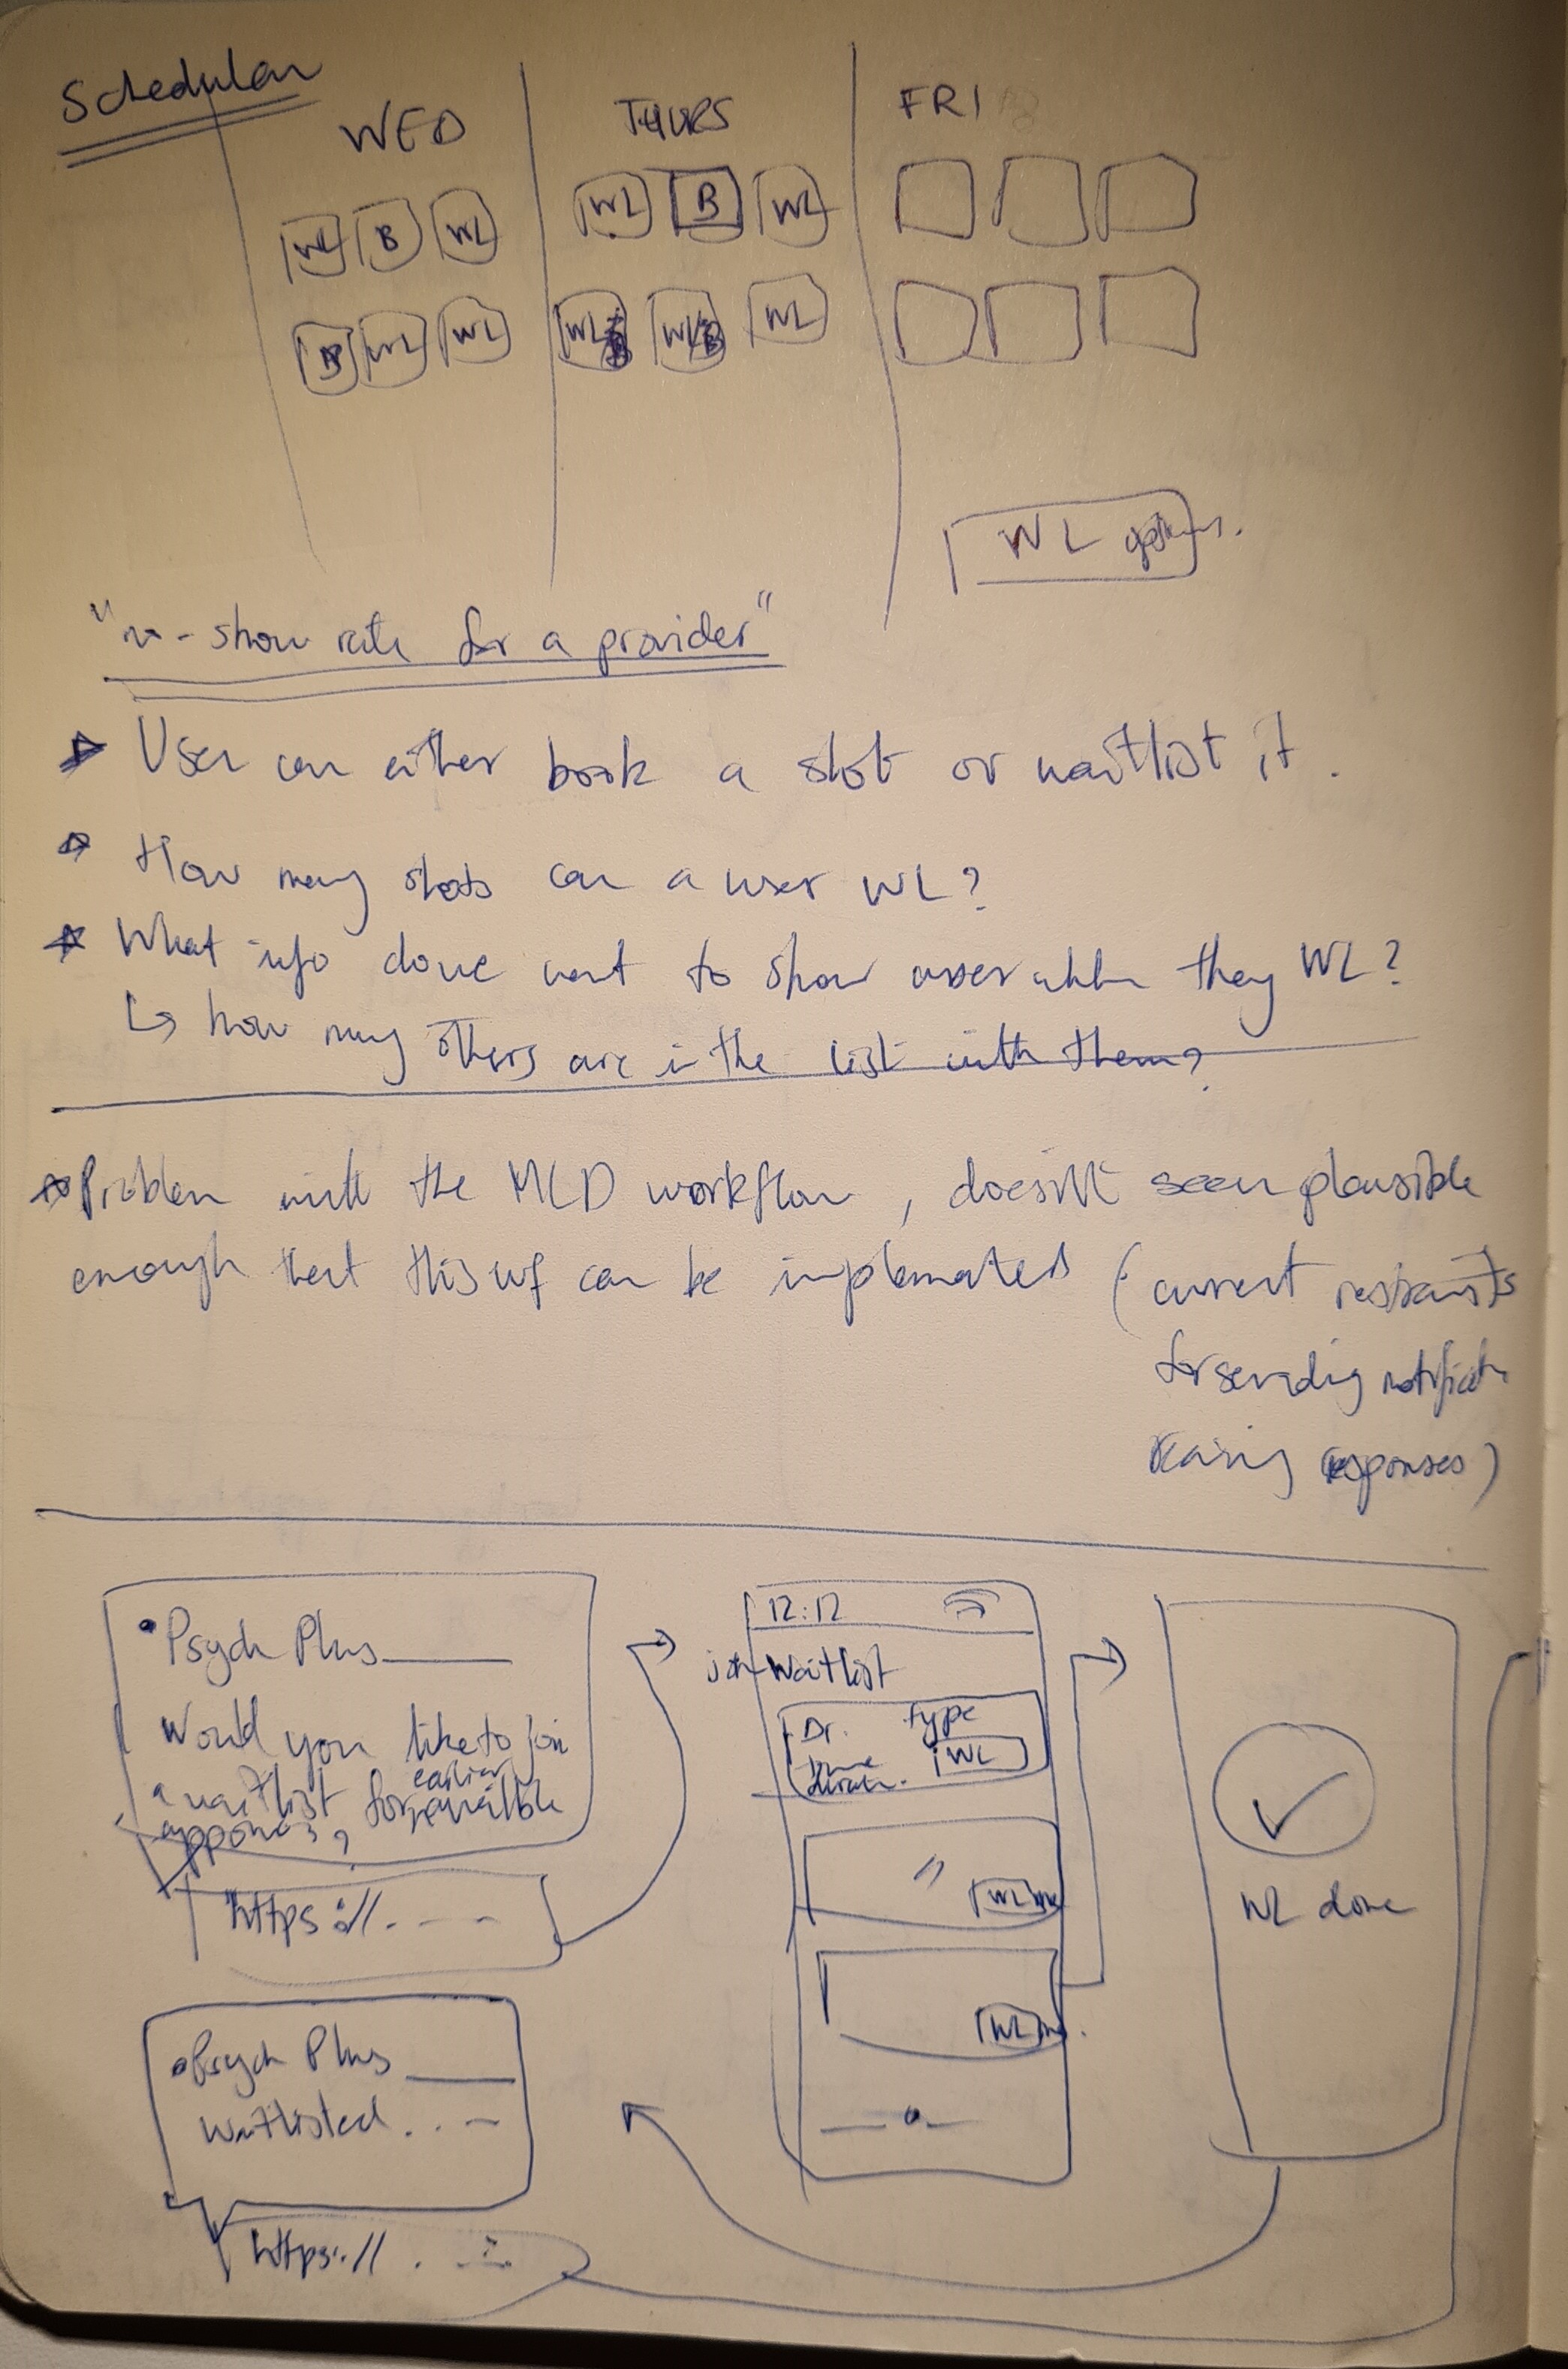 Scheduler
WED THURS FRI
WL B WL WL B WL
B WL WL WL WL B WL
WL
"no-show rate for a provider"
User can either book a slot or waitlist it.
How many slots can a user WL?
What info do we want to show user when they WL?
↳ how many others are in the list with them?
Problem with the MLD workflow, doesn't seem plausible
enough that this wf can be implemented (current restraints
for sending
responses)
Psych Plus
Would you like to join
a waitlist for earlier available
?
https://. - - -
12:12
join waitlist
Dr. type
time WL
"
WL me
WL me
WL done
Psych Plus
Waitlisted . . -
https://. - - -